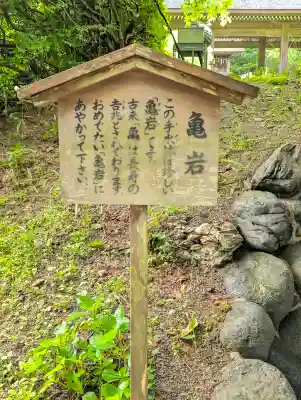 亀岩
この手水鉢は珍しい
「亀岩」です。
古来、亀は長寿の
吉兆とされております
おめでたい「亀岩」に
あやかって下さい。